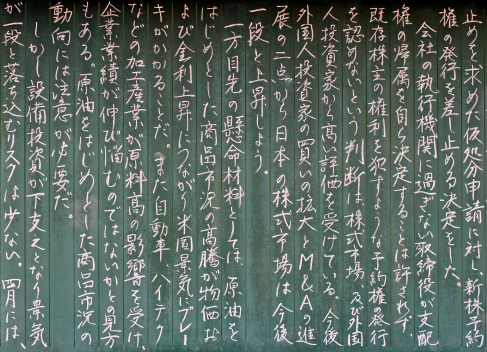 止めを求めた仮処分申請に対し、新株予約
権の発行を差し止める決定をした。
会社の執行機関に過ぎない取締役が支配
権の帰属を自ら決定することは許されず、
既存株主の権利を犯すような予約権の発行
を認めないという判断は、株式市場、及び外国
人投資家から高い評価を受けている。今後
外国人投資家の買いの拡大とM&Aの進
展の二点から日本の株式市場は今後
一段と上昇しよう。
一方目先の懸念材料としては、原油を
はじめとした商品市況の高騰が物価お
よび金利上昇につながり米国景気にブレー
キがかかることだ。また自動車、ハイテク
などの加工産業が原料高の影響を受け、
企業業績が伸び悩むのではないかとの見方
もある。原油をはじめとした商品市況の
動向には注意が必要だ。
しかし設備投資が下支えとなり景気
が一段と落ち込むリスクは少ない。四月には、